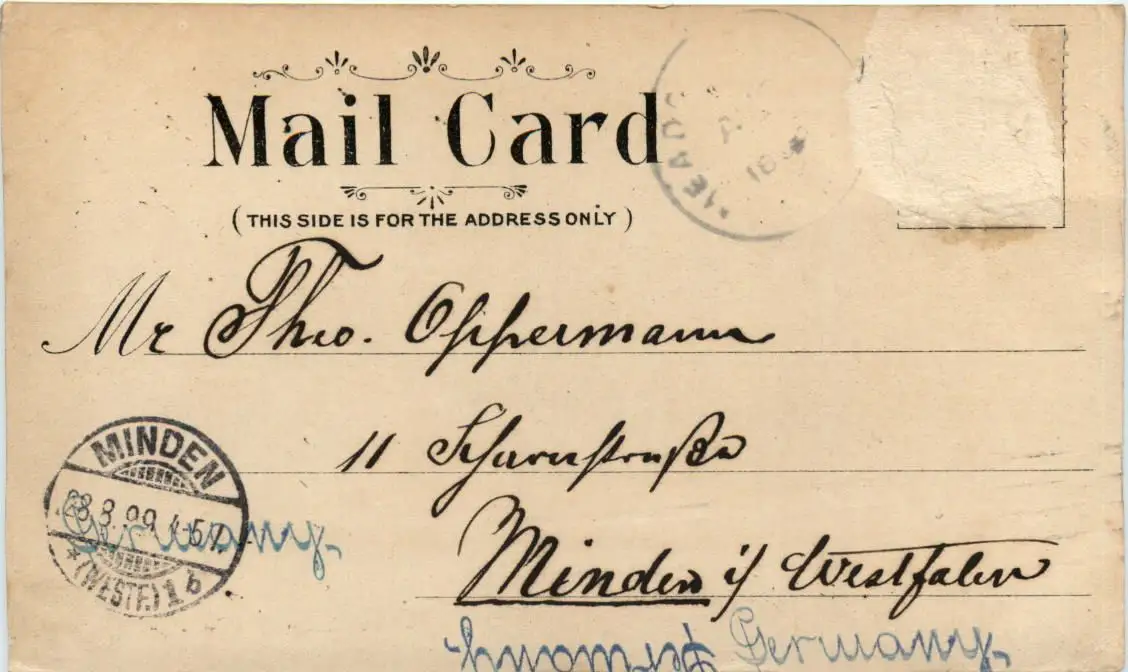 Mail Card
(THIS SIDE IS FOR THE ADDRESS ONLY)
Mr Theo. Oppermann
11 Scharnstraße
Minden i/ Westfalen
Germany.
Germany.
Germany
MINDEN
28.8.99 4-5N
* (WESTF.) 1 b